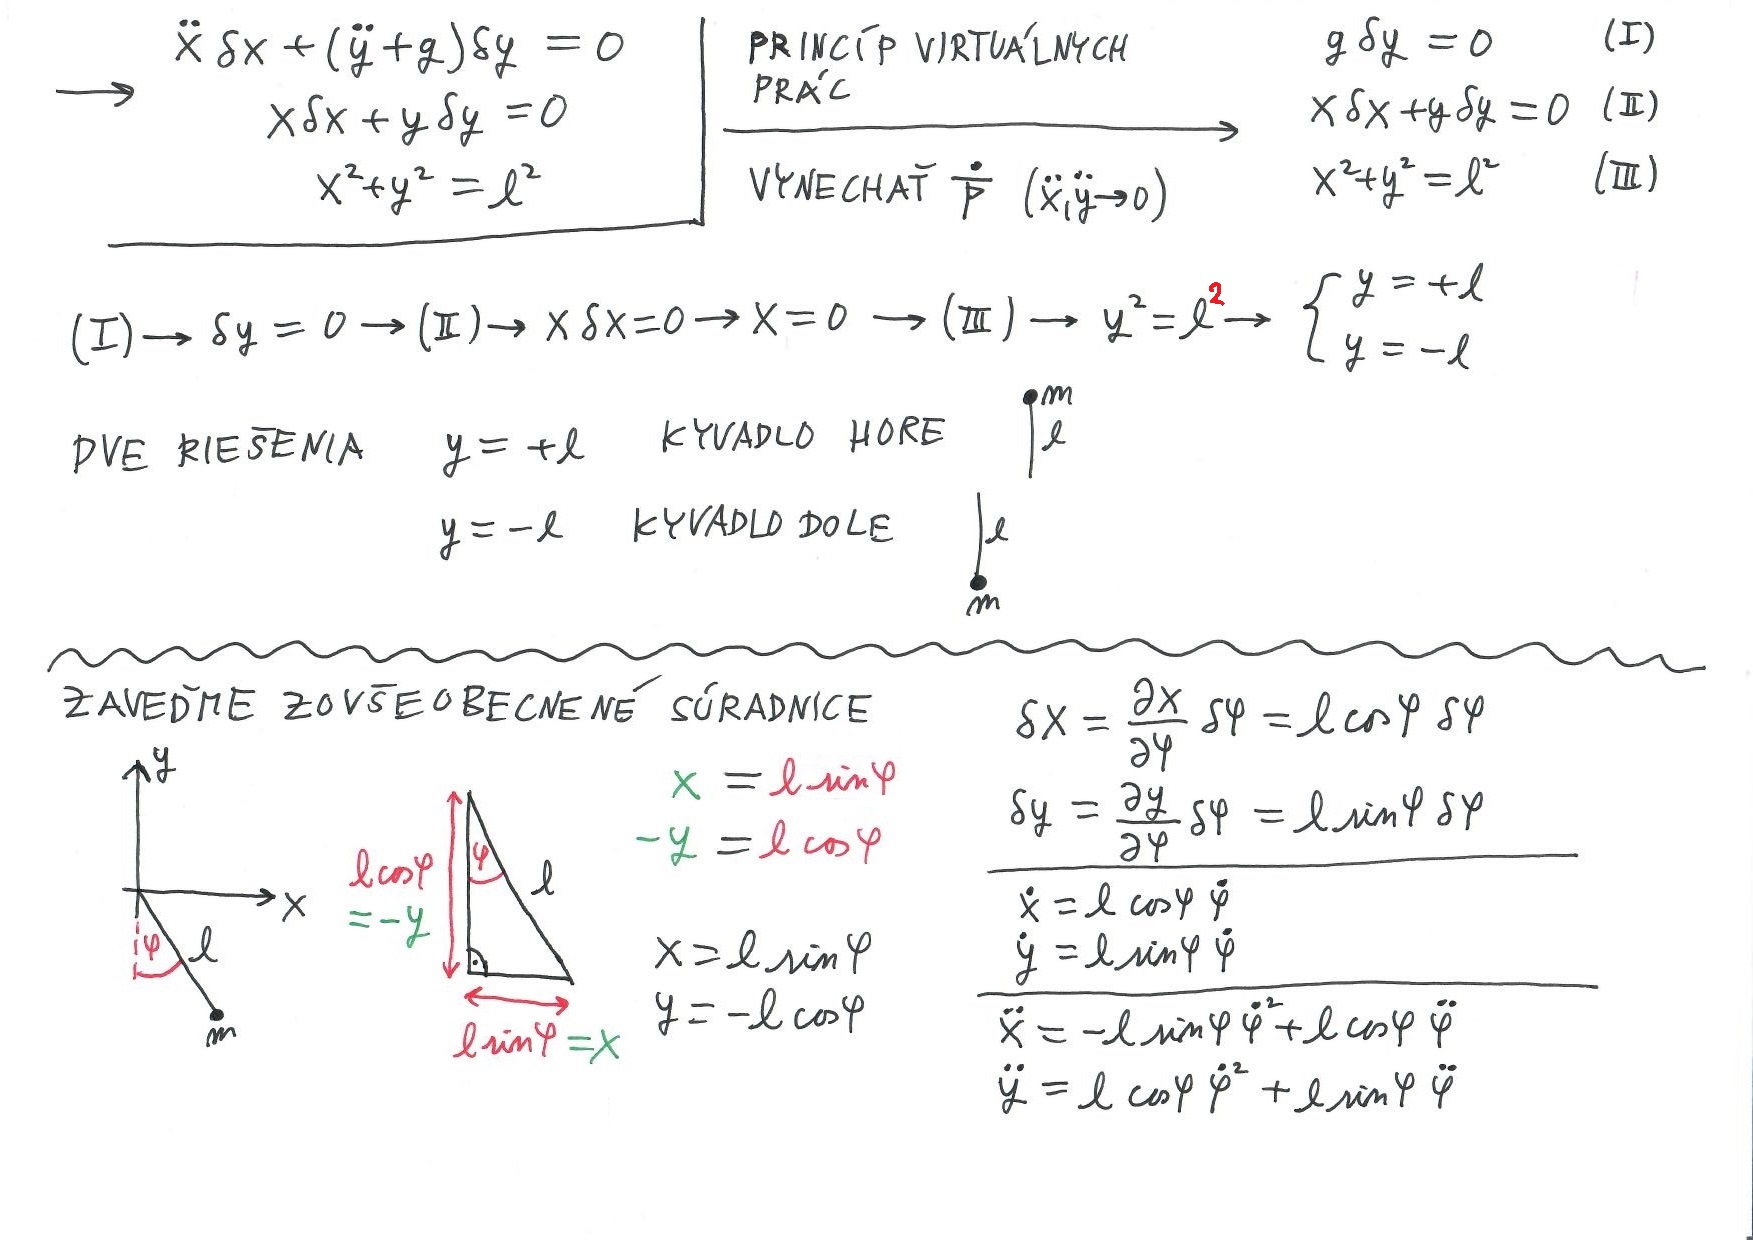 ẍ δx + (ÿ+g)δy = 0
→ xδx + y δy = 0
x²+y² = l²
PRINCÍP VIRTUÁLNYCH
PRÁC
VYNECHAŤ ṗ (ẍ,ÿ→0)
g δy = 0 (I)
x δx + y δy = 0 (II)
x²+y² = l² (III)
(I) → δy = 0 → (II) → x δx=0 → x = 0 → (III) → y² = l² → { y = +l
y = -l
DVE RIEŠENIA y = +l KYVADLO HORE
m
l
y = -l KYVADLO DOLE
l
m
ZAVEĎME ZOVŠEOBECNENÉ SÚRADNICE
y
x
φ
l
m
l cosφ
= -y
φ
l
l sinφ = x
x = l sinφ
-y = l cosφ
x = l sinφ
y = -l cosφ
δx = ∂x/∂φ δφ = l cosφ δφ
δy = ∂y/∂φ δφ = l sinφ δφ
ẋ = l cosφ φ̇
ẏ = l sinφ φ̇
ẍ = -l sinφ φ̇² + l cosφ φ̈
ÿ = l cosφ φ̇² + l sinφ φ̈